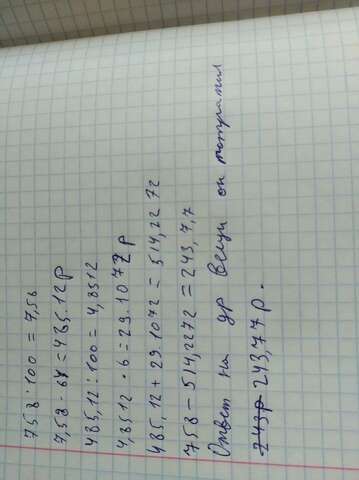 758 : 100 = 7,58
7,58 · 64 = 485.12р
485,12 : 100 = 4,8512
4,8512 · 6 = 29.1072р
485,12 + 29.1072 = 514,2272
758 - 514,2272 = 243,7,7
Ответ на др вещи он потратил
243р 243,77 р.